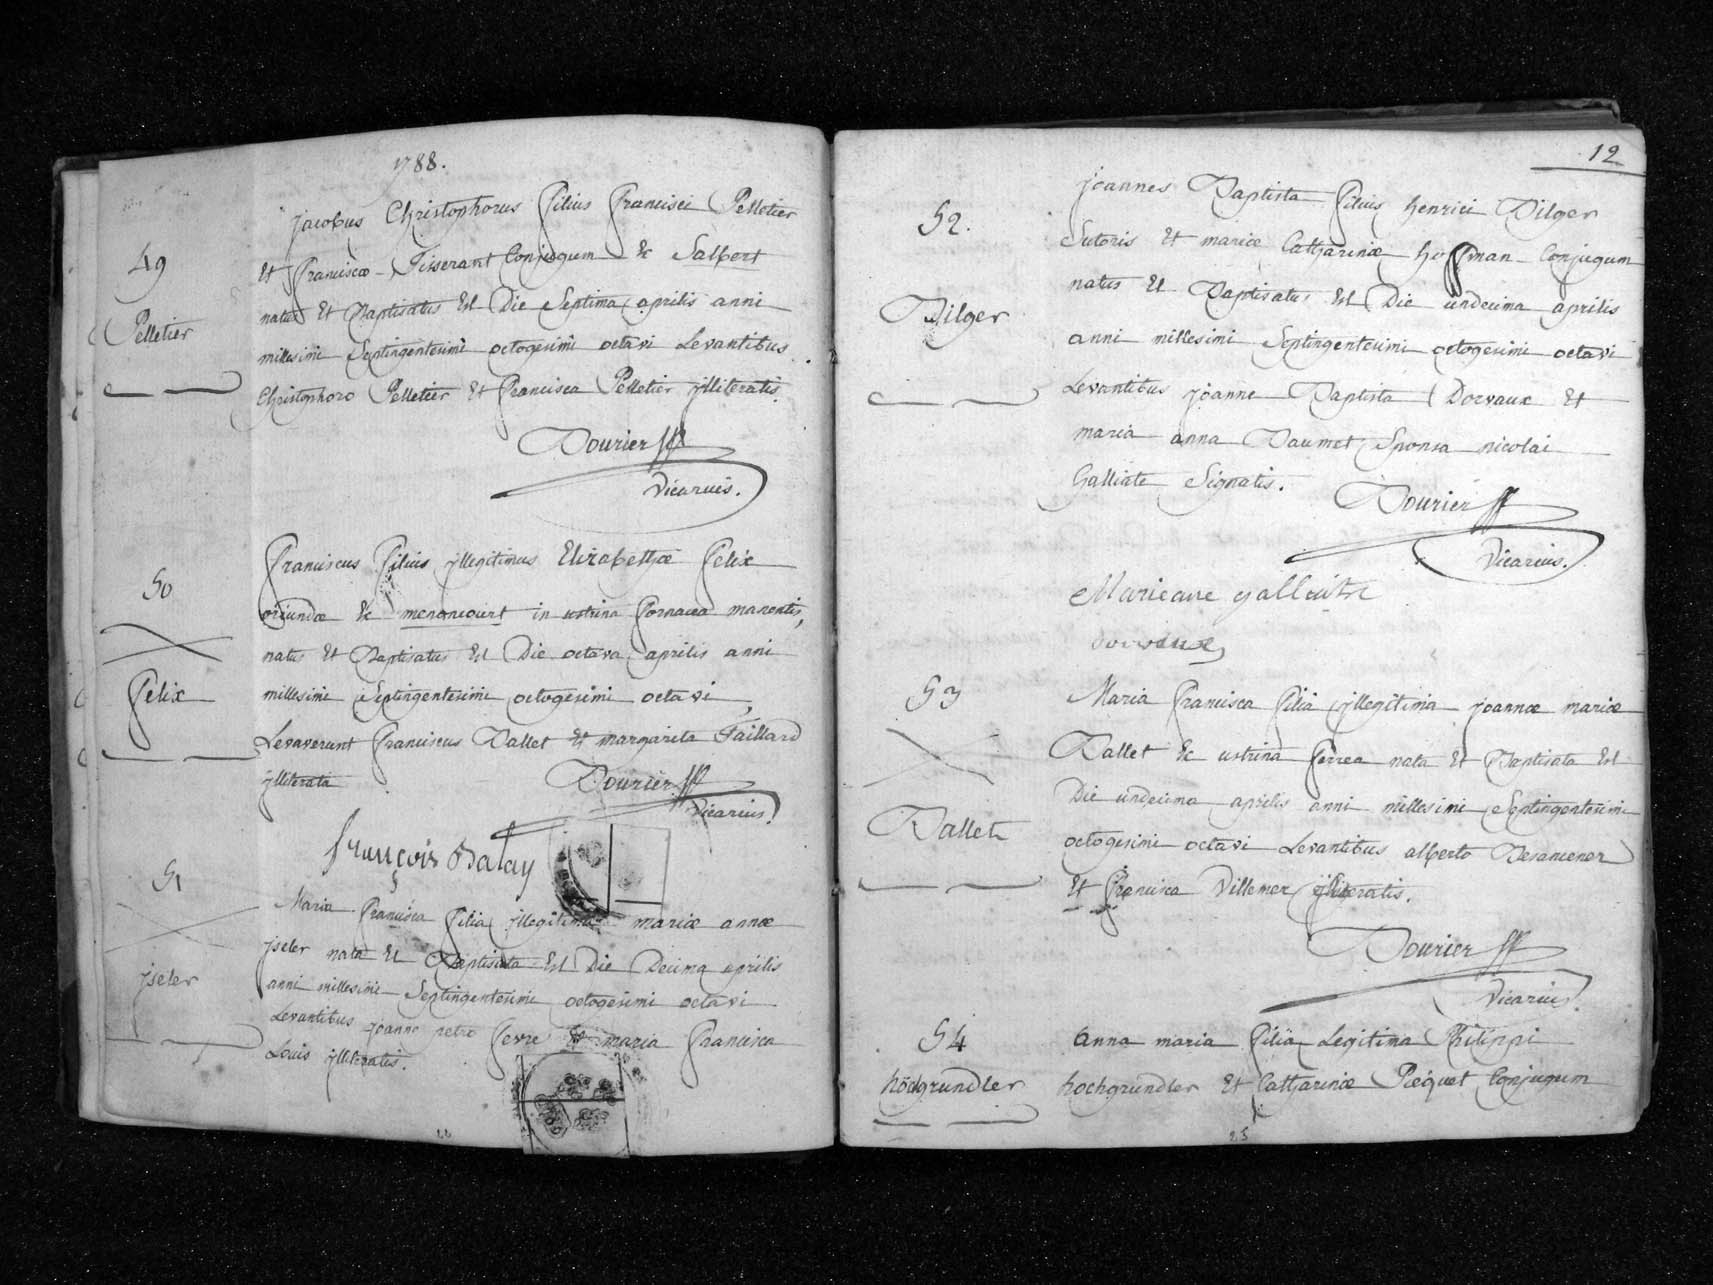 1788.
49
Pelletier
Jacobus Christophorus filius francisci Pelletier
et franciscæ Tisserant Conjugum de Salbert
natus et Baptisatus est Die Septima aprilis anni
millesimi Septingentesimi octogesimi octavi Levantibus
Christophoro Pelletier et francisca Pelletier jlliteratis.
Dourier
Vicarius.
50
felix
franciscus filius jllegitimus Elizabethæ felix
oriundæ de menoncourt in ustrina fornacea manentis,
natus et Baptisatus est Die octava aprilis anni
millesimi Septingentesimi octogesimi octavi,
Levaverunt franciscus Ballet et margarita Taillard
jlliterata
Dourier
Vicarius.
françois Balay
51
jseler
Maria francisca filia jllegitima mariæ annæ
jseler nata et Baptisata est Die Decima aprilis
anni millesimi Septingentesimi octogesimi octavi
Levantibus joanne petro fevre et maria francisca
Louis jlliteratis.
12
52.
Dilger
joannes Baptista filius henrici Dilger
Sutoris et mariæ Catharinæ hoffman Conjugum
natus et Baptisatus est Die undecima aprilis
anni millesimi Septingentesimi octogesimi octavi
Levantibus joanne Baptista Dorvaux et
maria anna Daumet Sponsa nicolai
Galliate Signatis.
Dourier
Vicarius.
dorvaux
53
Ballet
Maria francisca filia jllegitima joannæ mariæ
Ballet de ustrina ferrea nata et Baptisata est
Die undecima aprilis anni millesimi Septingentesimi
octogesimi octavi Levantibus alberto Besancener
et francisca Villemer jlliteratis.
Dourier
Vicarius
54
höchgrundler
anna maria filia Legitima Philippi
hochgrundler et Catharinæ Piequet Conjugum